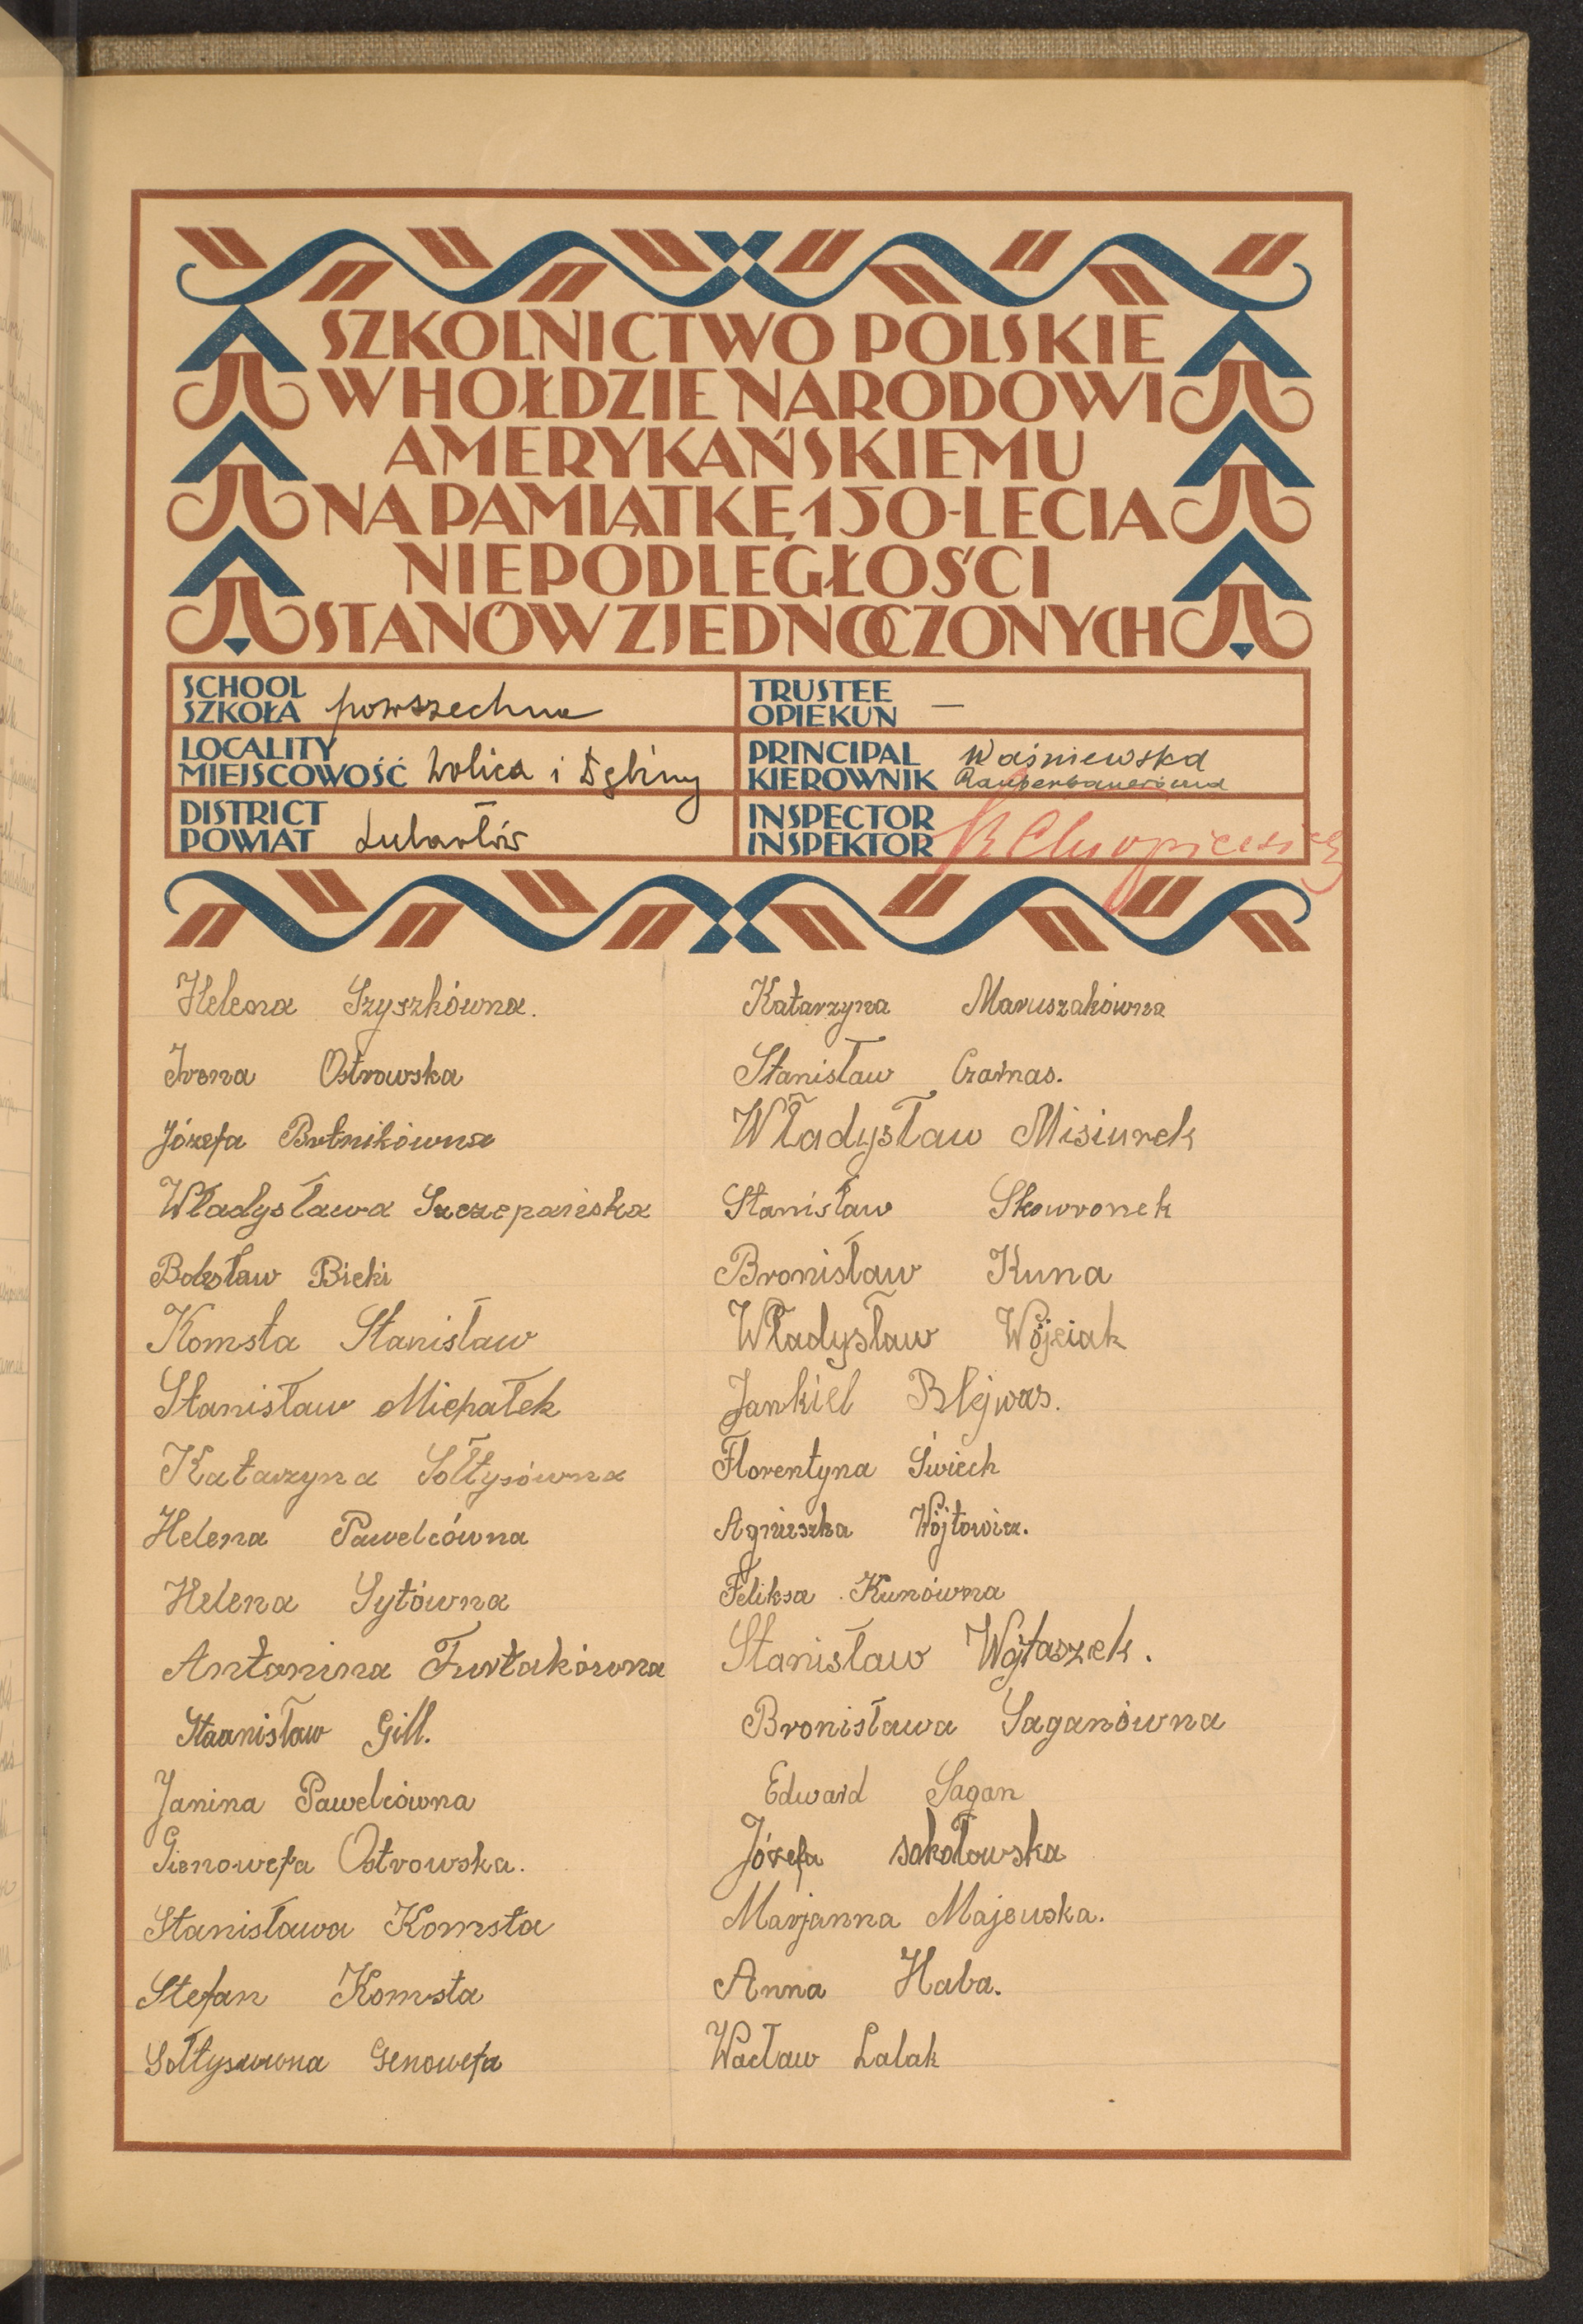 SZKOLNICTWO POLSKIE
W HOŁDZIE NARODOWI
AMERYKAŃSKIEMU
NA PAMIĄTKĘ 150-LECIA
NIEPODLEGŁOŚCI
STANÓW ZJEDNOCZONYCH
SCHOOL
SZKOŁA powszechna
TRUSTEE
OPIEKUN —
LOCALITY
MIEJSCOWOŚĆ Wolica i Dębiny
PRINCIPAL Waśniewska
KIEROWNIK Rauberbauerówna
DISTRICT
POWIAT Lubartów
INSPECTOR
INSPEKTOR
Helena Szyszkówna.
Irena Ostrowska
Józefa Butnikówna
Władysława Szczepańska
Bolesław Bicki
Komsta Stanisław
Stanisław Michałek
Katarzyna Sołtysówna
Helena Pawelcówna
Helena Sytówna
Antonina Furtakówna
Staanisław Gill.
Janina Pawelcówna
Gienowefa Ostrowska.
Stanisława Komsta
Stefan Komsta
Sołtysówna Genowefa
Katarzyna Maruszakówna
Stanisław Czarnas.
Władysław Misiurek
Stanisław Skowronek
Bronisław Kuna
Władysław Wójciak
Jankiel Blejwas.
Florentyna Świech
Agnieszka Wójtowicz.
Feliksa Kunówna
Stanisław Wójtaszek.
Bronisława Saganówna
Edward Sagan
Józefa sokołowska
Marjanna Majewska.
Anna Haba.
Wacław Lalak